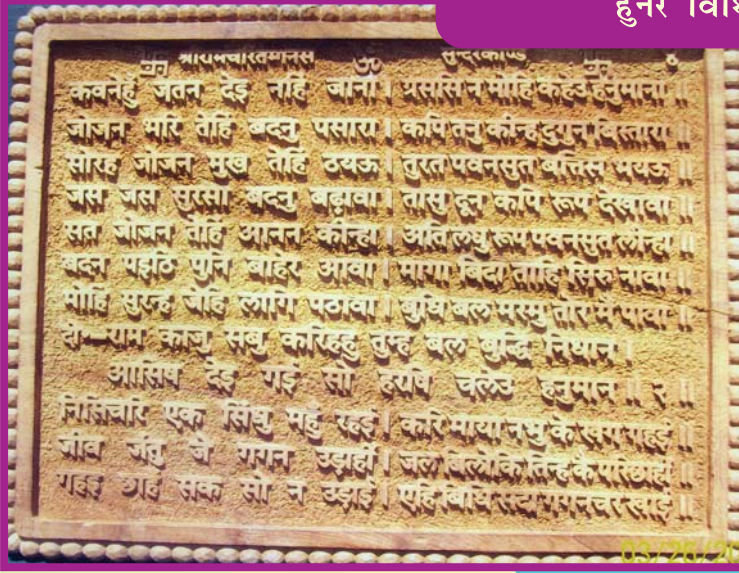 हुनर
श्रीरामचरितमानस ॐ सुन्दरकाण्ड
कवनेहुँ जतन देइ नहिं जाना। ग्रससि न मोहि कहेउ हनुमाना॥
जोजन भरि तेहिं बदनु पसारा। कपि तनु कीन्ह दुगुन बिस्तारा॥
सोरह जोजन मुख तेहिं ठयऊ। तुरत पवनसुत बत्तिस भयऊ॥
जस जस सुरसा बदनु बढ़ावा। तासु दून कपि रूप देखावा॥
सत जोजन तेहिं आनन कीन्हा। अति लघु रूप पवनसुत लीन्हा॥
बदन पइठि पुनि बाहेर आवा। मागा बिदा ताहि सिरु नावा॥
मोहि सुरन्ह जेहि लागि पठावा। बुधि बल मरमु तोर मैं पावा॥
दो—राम काजु सबु करिहहु तुम्ह बल बुद्धि निधान।
आसिष देइ गई सो हरषि चलेउ हनुमान॥ २॥
निसिचरि एक सिंधु महुँ रहई। करि माया नभु के खग गहई॥
जीव जंतु जे गगन उड़ाहीं। जल बिलोकि तिन्ह कै परिछाहीं॥
गहइ छाहँ सक सो न उड़ाई। एहि बिधि सदा गगनचर खाई॥
03/26/20